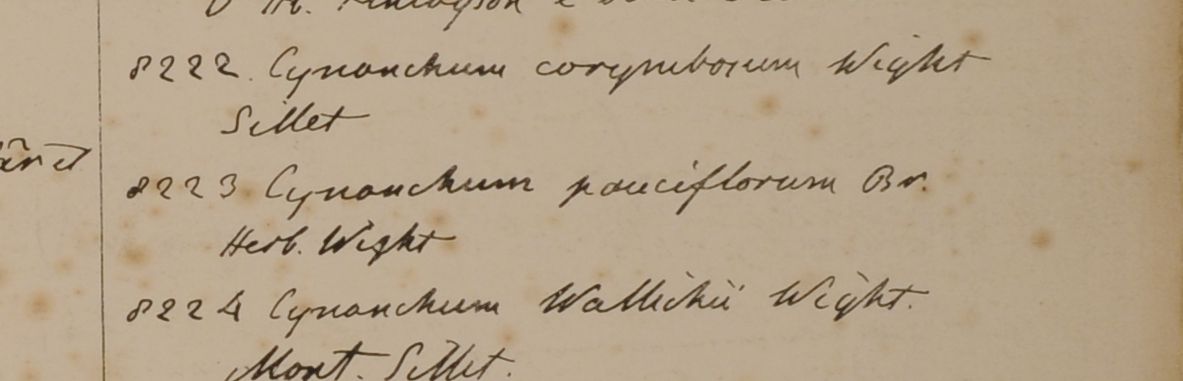 Hb. Finlayson
8222. Cynanchum corymbosum Wight
Sillet
8223 Cynanchum pauciflorum Br.
Herb. Wight
8224 Cynanchum Wallichii Wight.
Mont. Sillet.